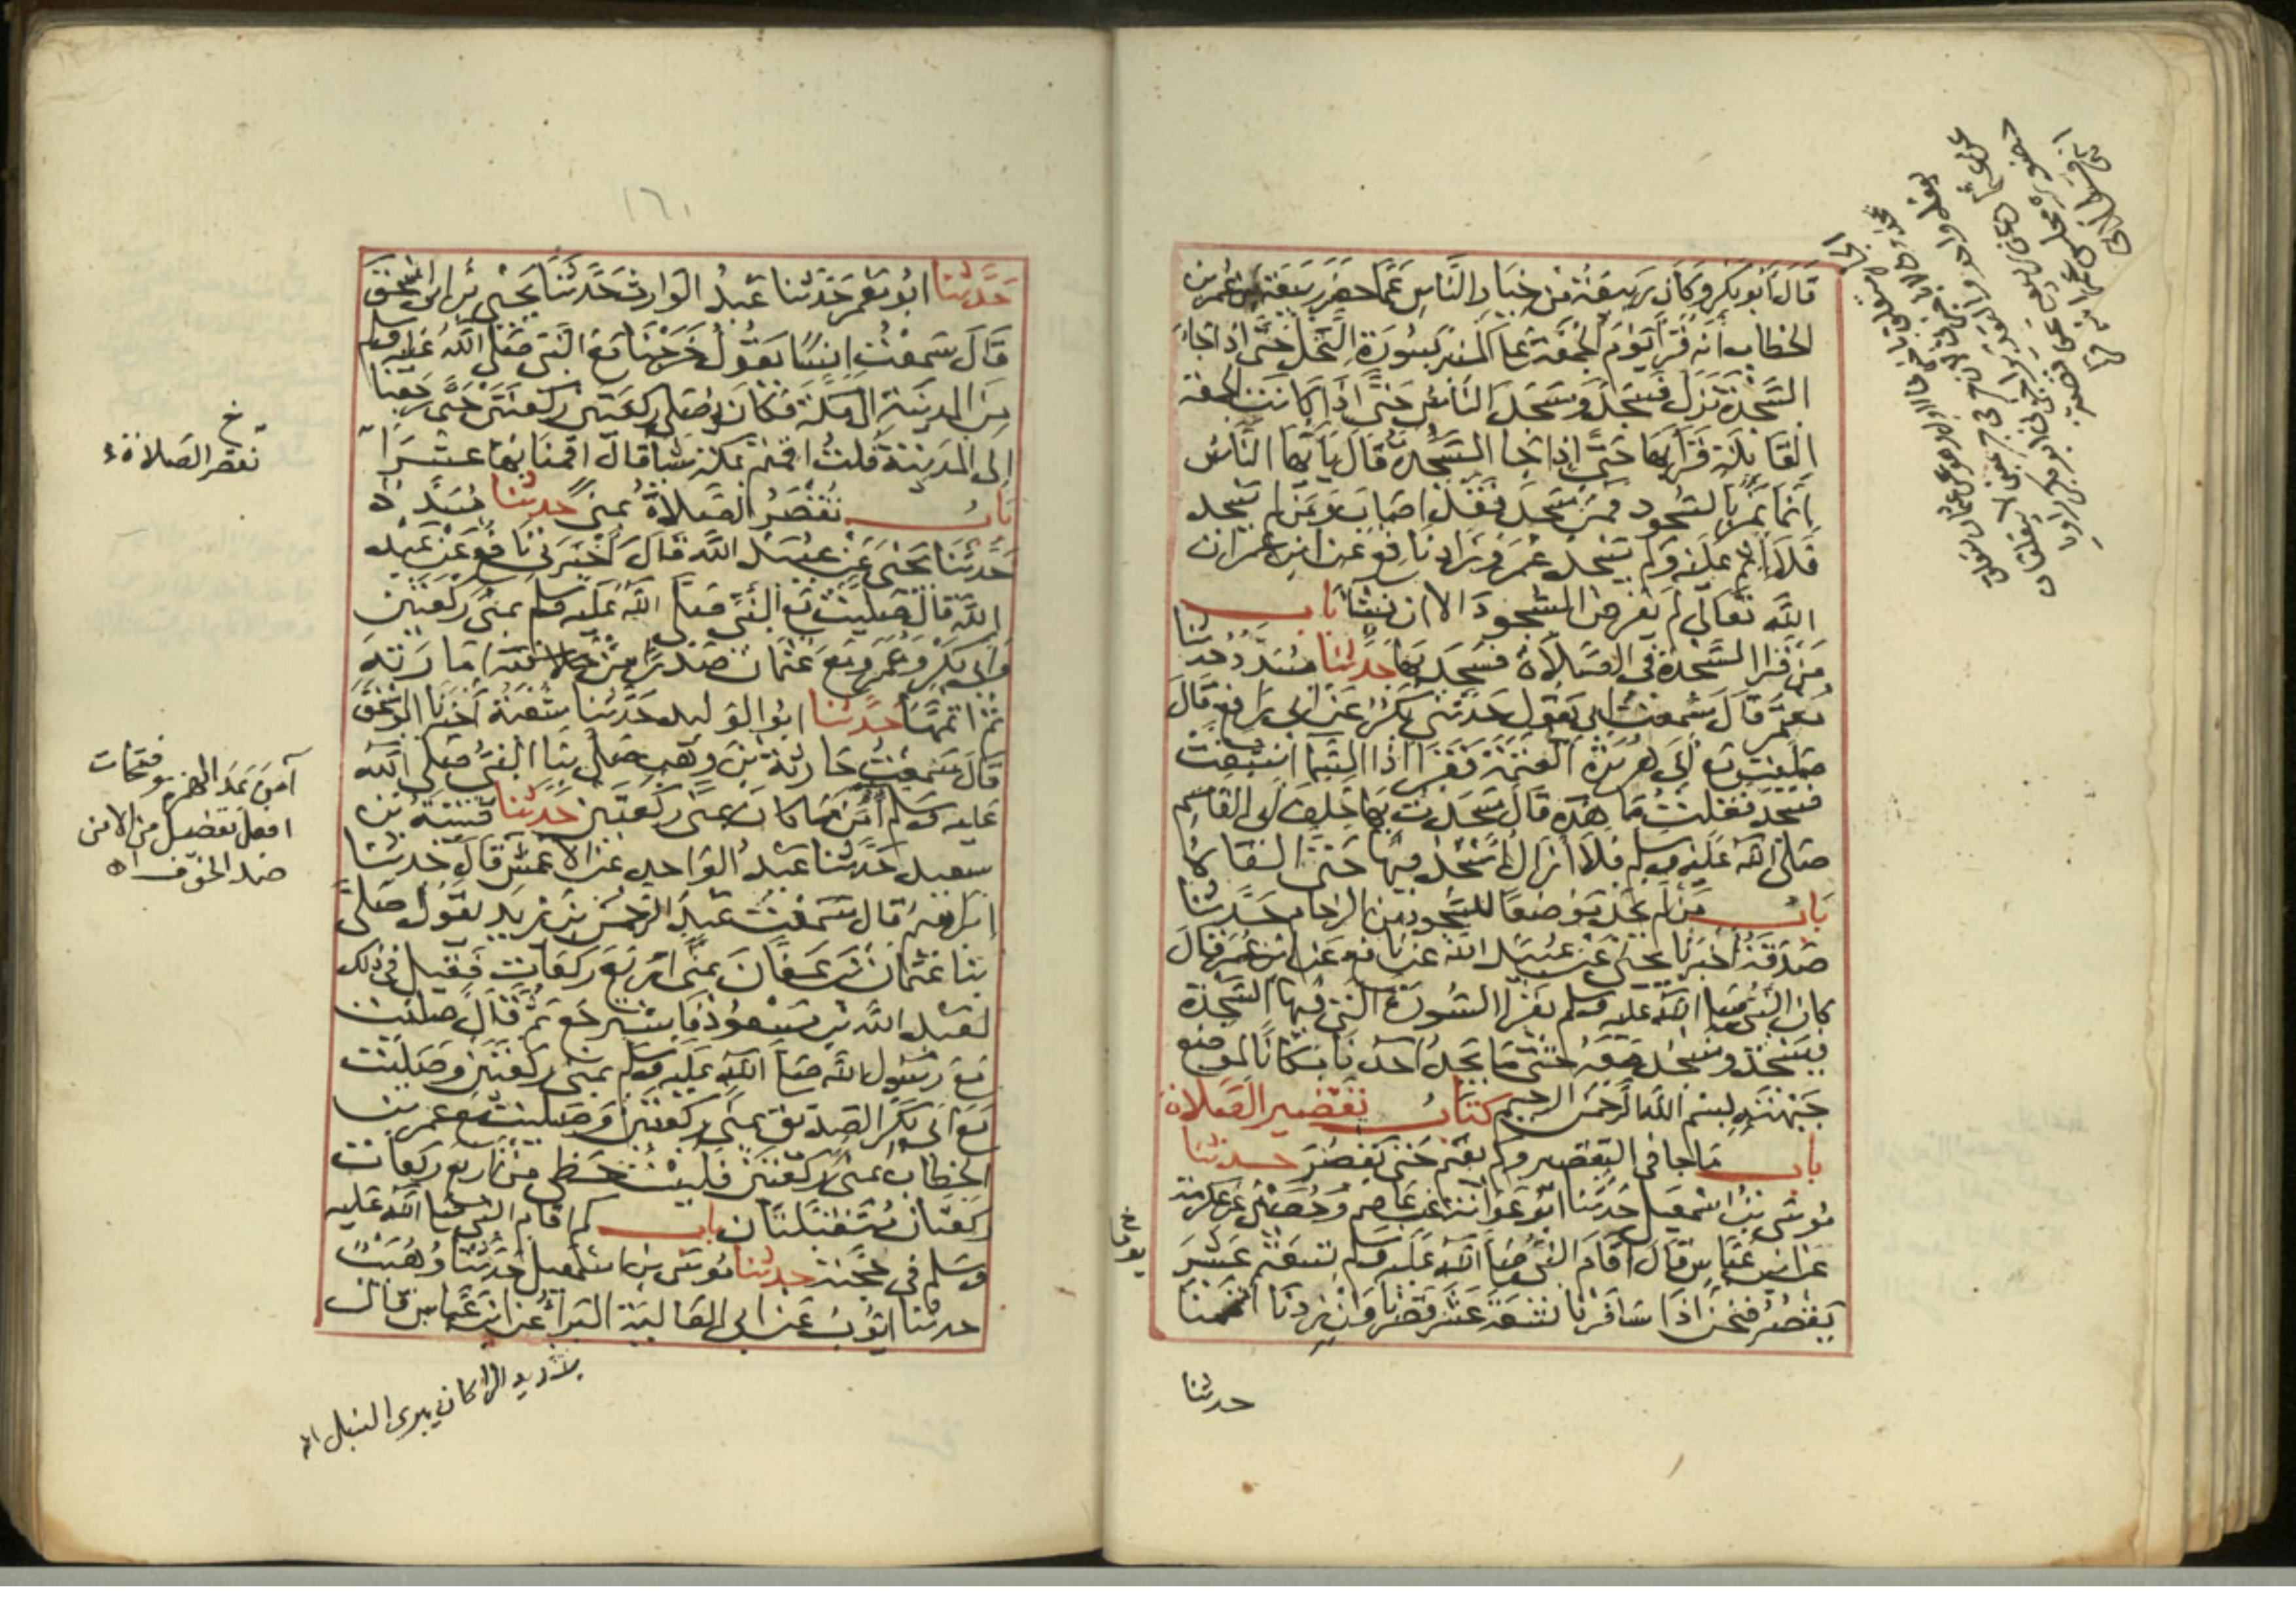 قال أبو بكر وكان ربيعة من خيار الناس عما حضر ربيعة من عمر بن
الخطاب أنه قرأ يوم الجمعة على المنبر بسورة النحل حتى إذا جاء
السجدة نزل فسجد وسجد الناس حتى إذا كانت الجمعة
القابلة قرأ بها حتى إذا جا السجدة قال يا أيها الناس
إنما نمر بالسجود فمن سجد فقد أصاب ومن لم يسجد
فلا إثم عليه ولم يسجد عمر وزاد نافع عن ابن عمر إن
الله تعالى لم يفرض السجود إلا أن نشا باب
من قرأ السجدة في الصلاة فسجد بها حدثنا مسدد حدثنا
معتمر قال سمعت أبي يقول حدثني بكر عن أبي رافع قال
صليت مع أبي هريرة العتمة فقرأ إذا السما انشقت
فسجد فقلت ما هذه قال سجدت بها خلف أبي القاسم
صلى الله عليه وسلم فلا أزال أسجد فيها حتى ألقاه
باب من لم يجد موضعا للسجود من الزحام حدثنا
صدقة أخبرنا يحيى عن عبيد الله عن نافع عن ابن عمر قال
كان النبي صلى الله عليه وسلم يقرأ السورة التي فيها السجدة
فيسجد ونسجد معه حتى ما يجد أحدنا مكانا لموضع
جبهته بسم الله الرحمن الرحيم كتاب تقصير الصلاة
باب ما جا في التقصير وكم يقيم حتى يقصر حدثنا
موسى بن اسمعيل حدثنا أبو عوانة عن عاصم وحصين عن عكرمة
عن ابن عباس قال أقام النبي صلى الله عليه وسلم تسعة عشر
يقصر فنحن إذا سافرنا تسعة عشر قصرنا وإن زدنا أتممنا
حدثنا
١٦١
حدثنا أبو معمر حدثنا عبد الوارث حدثنا يحيى بن أبي اسحق
قال سمعت انسا يقول خرجنا مع النبي صلى الله عليه وسلم
من المدينة إلى مكة فكان يصلي ركعتين ركعتين حتى رجعنا
إلى المدينة قلت أقمتم بمكة شيا قال أقمنا بها عشرا
باب تقصر الصلاة بمنى حدثنا مسدد
حدثنا يحيى عن عبيد الله قال أخبرني نافع عن عبد
الله قال صليت مع النبي صلى الله عليه وسلم بمنى ركعتين
وأبي بكر وعمر ومع عثمان صدرا من خلافته إمارته
ثم أتمها حدثنا أبو الوليد حدثنا شعبة أخبرنا أبو اسحق
قال سمعت حارثة بن وهب صلى بنا النبي صلى الله
عليه وسلم آمن ما كان بمنى ركعتين حدثنا قتيبة بن
سعيد حدثنا عبد الواحد عن الأعمش قال حدثنا
ابراهيم قال سمعت عبد الرحمن بن يزيد يقول صلى
بنا عثمان بن عفان بمنى أربع ركعات فقيل في ذلك
لعبد الله بن مسعود فاسترجع ثم قال صليت
مع رسول الله صلى الله عليه وسلم بمنى ركعتين وصليت
مع أبي بكر الصديق بمنى ركعتين وصليت مع عمر بن
الخطاب بمنى ركعتين فليت حظي من أربع ركعات
ركعتان متقبلتان باب كم أقام النبي صلى الله عليه
وسلم في حجته حدثنا موسى بن اسمعيل حدثنا وهيب
حدثنا أيوب عن أبي العالية البراء عن ابن عباس قال
خ
تقصر الصلاة
آمن بمد الهمزة وفتحات
افعل تفضيل من الامن
ضد الخوف اه
بتشديد الراء كان يبري النبل اه